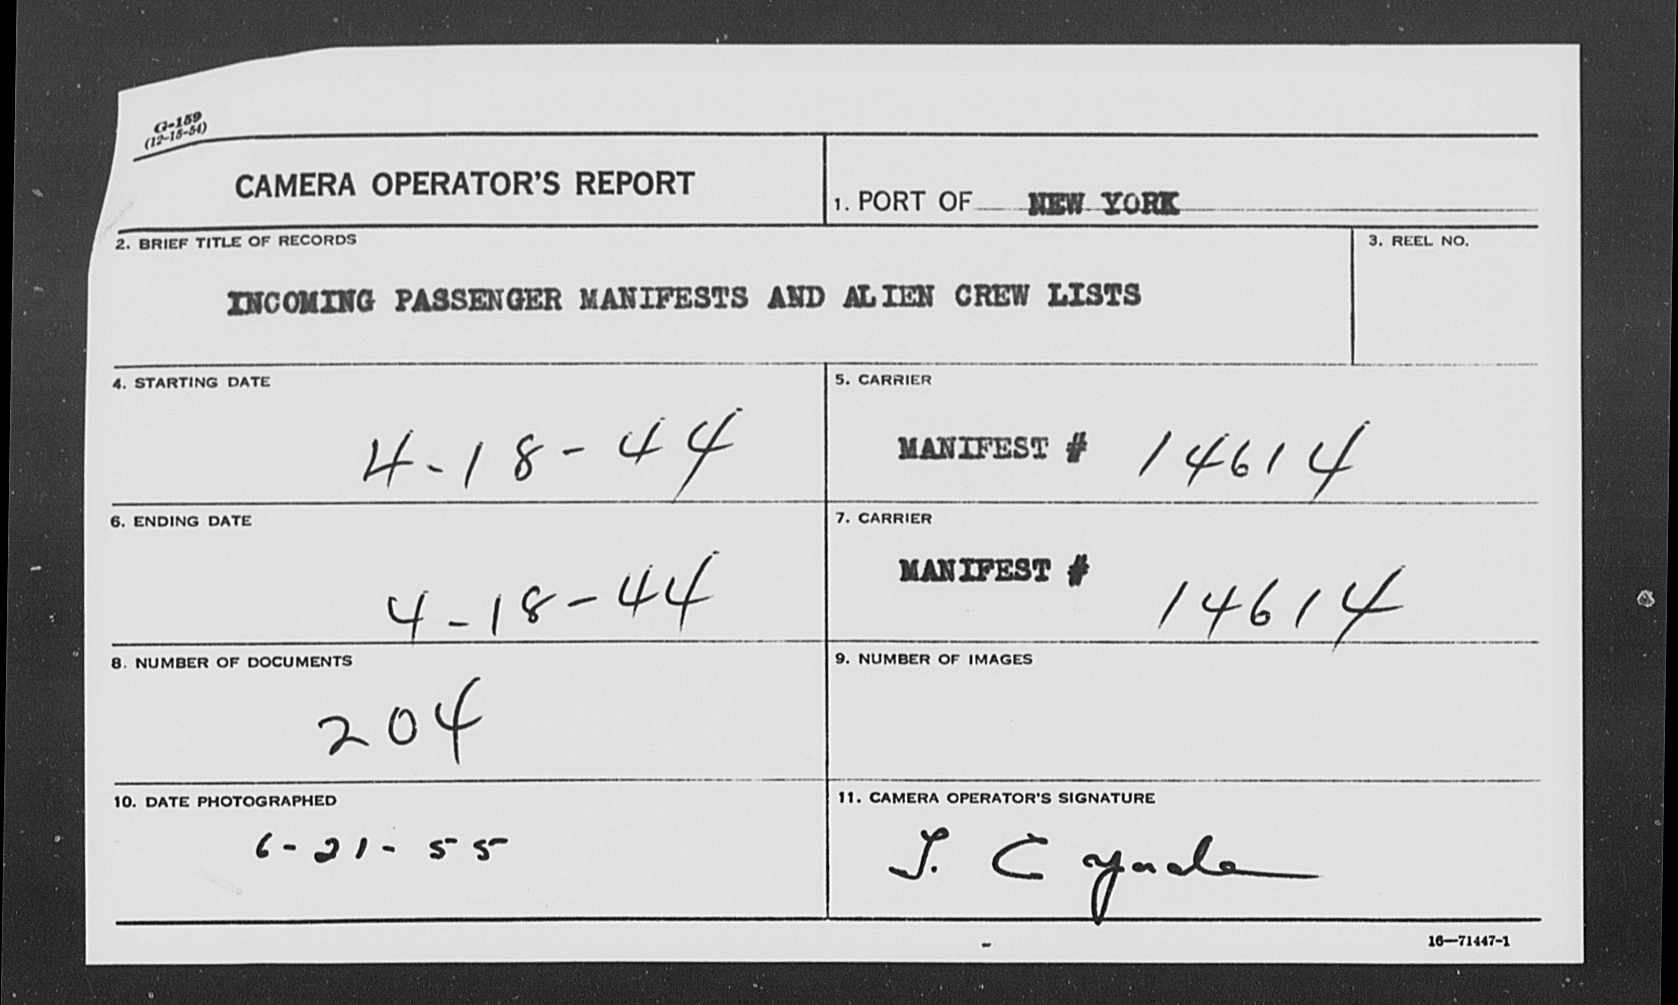 G-159
(12-15-54)
CAMERA OPERATOR'S REPORT
1. PORT OF NEW YORK
2. BRIEF TITLE OF RECORDS
3. REEL NO.
INCOMING PASSENGER MANIFESTS AND ALIEN CREW LISTS
4. STARTING DATE
4-18-44
5. CARRIER
MANIFEST # 14614
6. ENDING DATE
4-18-44
7. CARRIER
MANIFEST # 14614
8. NUMBER OF DOCUMENTS
204
9. NUMBER OF IMAGES
10. DATE PHOTOGRAPHED
6-21-55
11. CAMERA OPERATOR'S SIGNATURE
16—71447-1